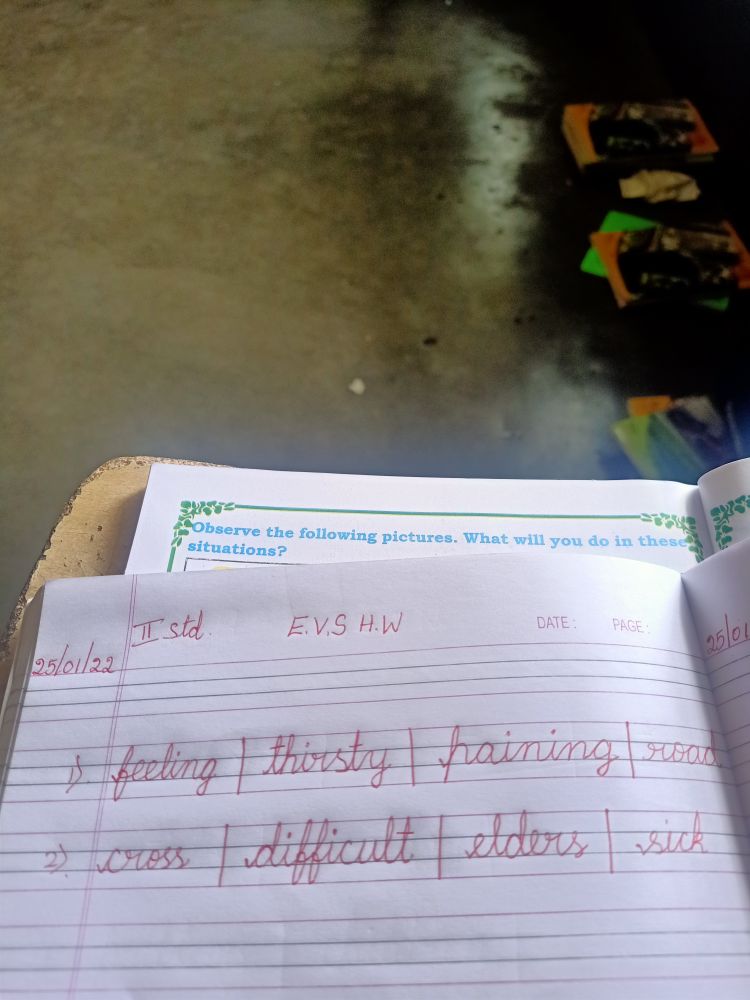 Observe the following pictures. What will you do in these
situations?
II std. E.V.S H.W DATE: PAGE:
25/01/22
1) feeling | thirsty | paining | road
2) cross | difficult | elders | sick
25/01